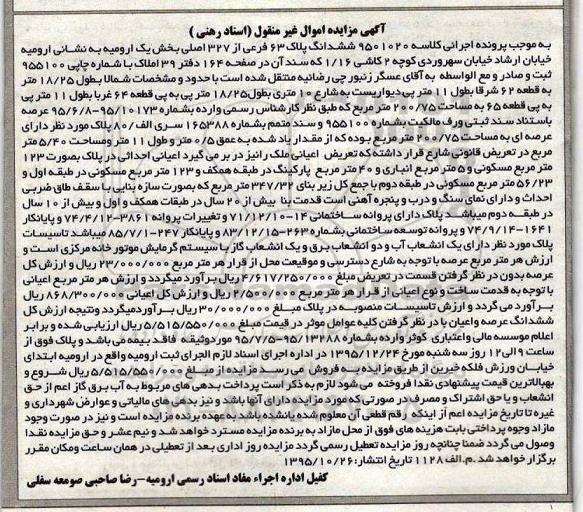 آگهی مزایده اموال غیر منقول (اسناد رهنی)
به موجب پرونده اجرائی کلاسه ۹۵۰۱۰۲۰ ششدانگ پلاک ۶۳ فرعی از ۳۲۷ اصلی بخش یک ارومیه به نشانی ارومیه
خیابان ارشاد خیابان سهروردی کوچه ۲ کاشی ۱/۱۶ که سند آن در صفحه ۱۶۴ دفتر ۳۹ املاک با شماره چاپی ۹۵۵۱۰۰
ثبت و صادر و مع الواسطه به آقای عسگر زنبور چی رضائیه منتقل شده است با حدود و مشخصات شمالا بطول ۱۸/۲۵ متر
به قطعه ۶۲ شرقا بطول ۱۱ متر پی دیواریست به شارع ۱۰ متری بطول ۱۸/۲۵ متر پی به پی قطعه ۶۴ غربا بطول ۱۱ متر پی
به پی قطعه ۶۵ به مساحت ۲۰۰/۷۵ متر مربع که طبق نظر کارشناس رسمی وارده بشماره ۹۵/۱۰۱۷۳-۹۵/۶/۸ عرصه
باستناد سند ثبتی ورف مالکیت بشماره ۹۵۵۱۰۰ و سند متمم بشماره ۱۶۵۳۸۸ سری الف/۸۰ پلاک مورد نظر دارای
عرصه ای به مساحت ۲۰۰/۷۵ متر مربع بوده که از مقدار یاد شده به عمق ۰/۵ متر و طول ۱۱ متر ومساحت ۵/۴۰ متر
مربع در تعریض قانونی شارع قرار داشته که تعریض اعیانی ملک رانیز در بر می گیرد اعیانی احداثی در پلاک بصورت ۱۲۳
متر مربع مسکونی و ۵ متر مربع انباری و ۴۰ متر مربع پارکینگ در طبقه همکف و ۱۲۳ متر مربع مسکونی در طبقه اول و
۵۶/۲۳ متر مربع مسکونی در طبقه دوم با جمع کل زیر بنای ۳۴۷/۳۲ متر مربع که بصورت سازه بنایی با سقف طاق ضربی
احداث و دارای نمای سنگ و درب و پنجره آهنی است قدمت بنا بیش از ۲۰ سال در طبقات همکف و اول و بیش از ۱۰ سال
در طبقه دوم میباشد پلاک دارای پروانه ساختمانی ۱۴-۷۱/۱۲/۱۰ و تغییرات پروانه ۳۸۶۱-۷۴/۴/۱۲ و پایانکار
۱۶۴۱-۷۴/۹/۱۴ و پروانه توسعه ساختمانی بشماره ۲۶۳-۸۳/۱۲/۱۵ و پایانکار ۲۴۷-۸۵/۷/۱ میباشد تاسیسات
پلاک مورد نظر دارای یک انشعاب آب و دو انشعاب برق و یک انشعاب گاز با سیستم گرمایش موتور خانه مرکزی است و
ارزش هر متر مربع عرصه با توجه به شارع دسترسی و موقعیت محل از قرار هر متر مربع ۲۳/۰۰۰/۰۰۰ ریال و ارزش کل
عرصه بدون در نظر گرفتن قسمت در تعریض مبلغ ۴/۶۱۷/۲۵۰/۰۰۰ ریال برآورد میگردد و ارزش هر متر مربع اعیانی
با توجه به قدمت ساخت و نوع اعیانی از قرار هر متر مربع ۲/۵۰۰/۰۰۰ ریال و ارزش کل اعیانی ۸۶۸/۳۰۰/۰۰۰ ریال
برآورد می گردد و ارزش تاسیسات منصوبه در پلاک مبلغ ۳۰/۰۰۰/۰۰۰ ریال برآوردمیگردد ونتیجه ارزش کل
ششدانگ عرصه واعیان با در نظر گرفتن کلیه عوامل موثر در قیمت مبلغ ۵/۵۱۵/۵۵۰/۰۰۰ ریال ارزیابی شده و برابر
اعلام موسسه مالی واعتباری کوثر وارده بشماره ۹۵/۱۳۲۸۸-۹۵/۷/۵ موردوثیقه فاقد بیمه می باشد و پلاک فوق از
ساعت ۹ الی ۱۲ روز سه شنبه مورخ ۱۳۹۵/۱۲/۲۴ در اداره اجرای اسناد لازم الاجرای ثبت ارومیه واقع در ارومیه ابتدای
خیابان ورزش فلکه خیرین از طریق مزایده به فروش می رسد مزایده از مبلغ ۵/۵۱۵/۵۵۰/۰۰۰ ریال شروع و
بهبالاترین قیمت پیشنهادی نقدا فروخته می شود لازم به ذکر است پرداخت بدهی های مربوط به آب برق گاز اعم از حق
انشعاب و یا حق اشتراک و مصرف در صورتی که مورد مزایده دارای آنها باشد و نیز بدهی های مالیاتی و عوارض شهرداری و
غیره تا تاریخ مزایده اعم از اینکه رقم قطعی آن معلوم شده یانشده باشد به عهده برنده مزایده است و نیز در صورت وجود
مازاد وجوه پرداختی بابت هزینه های فوق از محل مازاد به برنده مزایده مسترد خواهد شد و نیم عشر و حق مزایده نقدا
وصول می گردد ضمنا چنانچه روز مزایده تعطیل رسمی گردد مزایده روز اداری بعد از تعطیلی در همان ساعت ومکان مقرر
برگزار خواهد شد .م.الف ۱۱۲۸ تاریخ انتشار: ۱۳۹۵/۱۰/۲۶
کفیل اداره اجراء مفاد اسناد رسمی ارومیه-رضا صاحبی صومعه سفلی